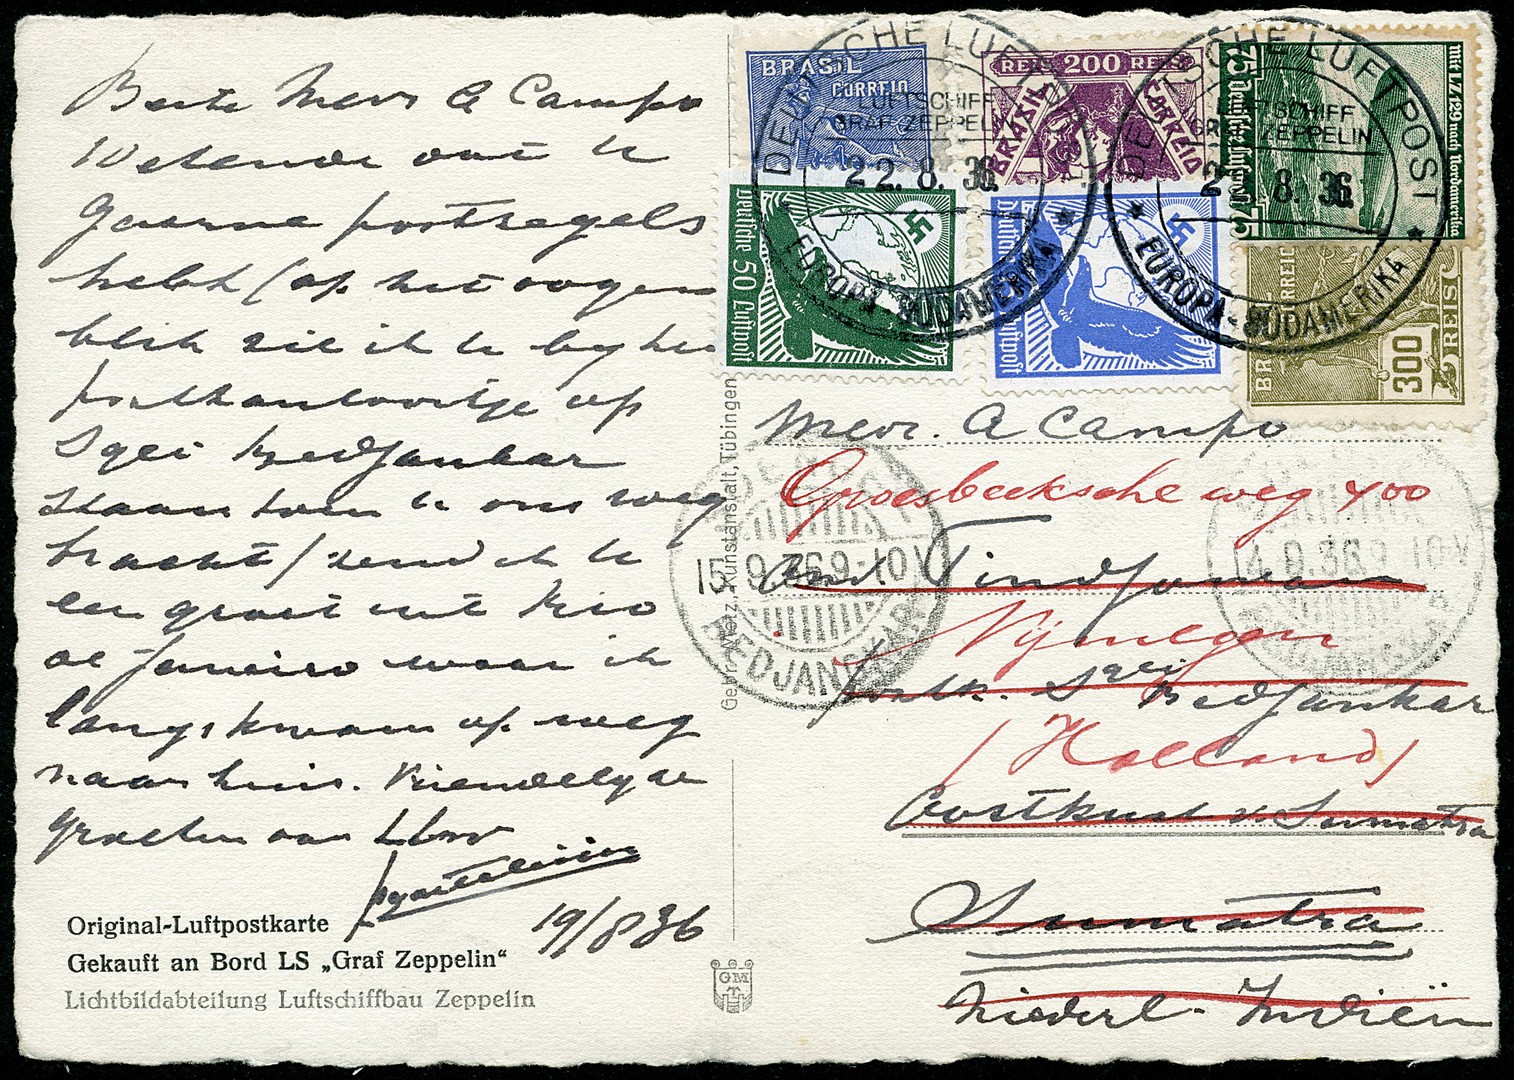 Beste Mevr A Campo
Wetende dat U
gaarne postzegels
hebt (op het oogen
blik zie ik U bij het
postkantoortje op
Sgei Bedjankar
staan toen U ons weg
bracht) zend ik U
een groet uit Rio
de Janeiro waar ik
langs kwam op weg
naar huis. Vriendelijke
groeten van
19/8 36
Original-Luftpostkarte
Gekauft an Bord LS „Graf Zeppelin“
Lichtbildabteilung Luftschiffbau Zeppelin
Gebr. Metz, Kunstanstalt, Tübingen
GM
T
BRASIL
CORREIO
REIS 200 REIS
BRASIL CORREIO
75 Deutsche Luftpost 75
mit LZ 129 nach Nordamerika
Deutsche 50 Luftpost
Deutsche Luftpost
300 REIS
DEUTSCHE LUFTPOST
LUFTSCHIFF
GRAF ZEPPELIN
22. 8. 36.
EUROPA-SÜDAMERIKA
DEUTSCHE LUFTPOST
LUFTSCHIFF
GRAF ZEPPELIN
22. 8. 36.
EUROPA-SÜDAMERIKA
Mevr. A Campo
Groesbeeksche weg 400
Ond. Tindjoman
Nijmegen
Postk. Sgei Bedjankar
(Holland)
Oostkust v. Sumatra
Sumatra
Niederl. Indiën
15.9.36.9-10V
BEDJANGKAR
14.9.36.9-10V